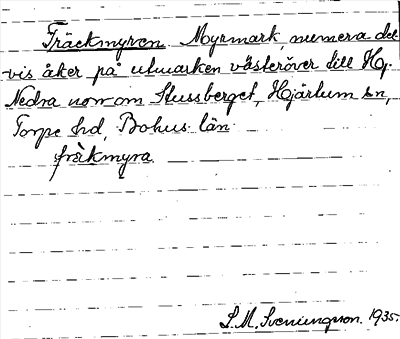 Fräckmyren. Myrmark, numera del-
vis åker på utmarken västeröver till Hj.
Nedra norr om Stussberget, Hjärtum sn,
Torpe hd, Bohus län.
fräkmyra
S. M. Sveningsson. 1935.